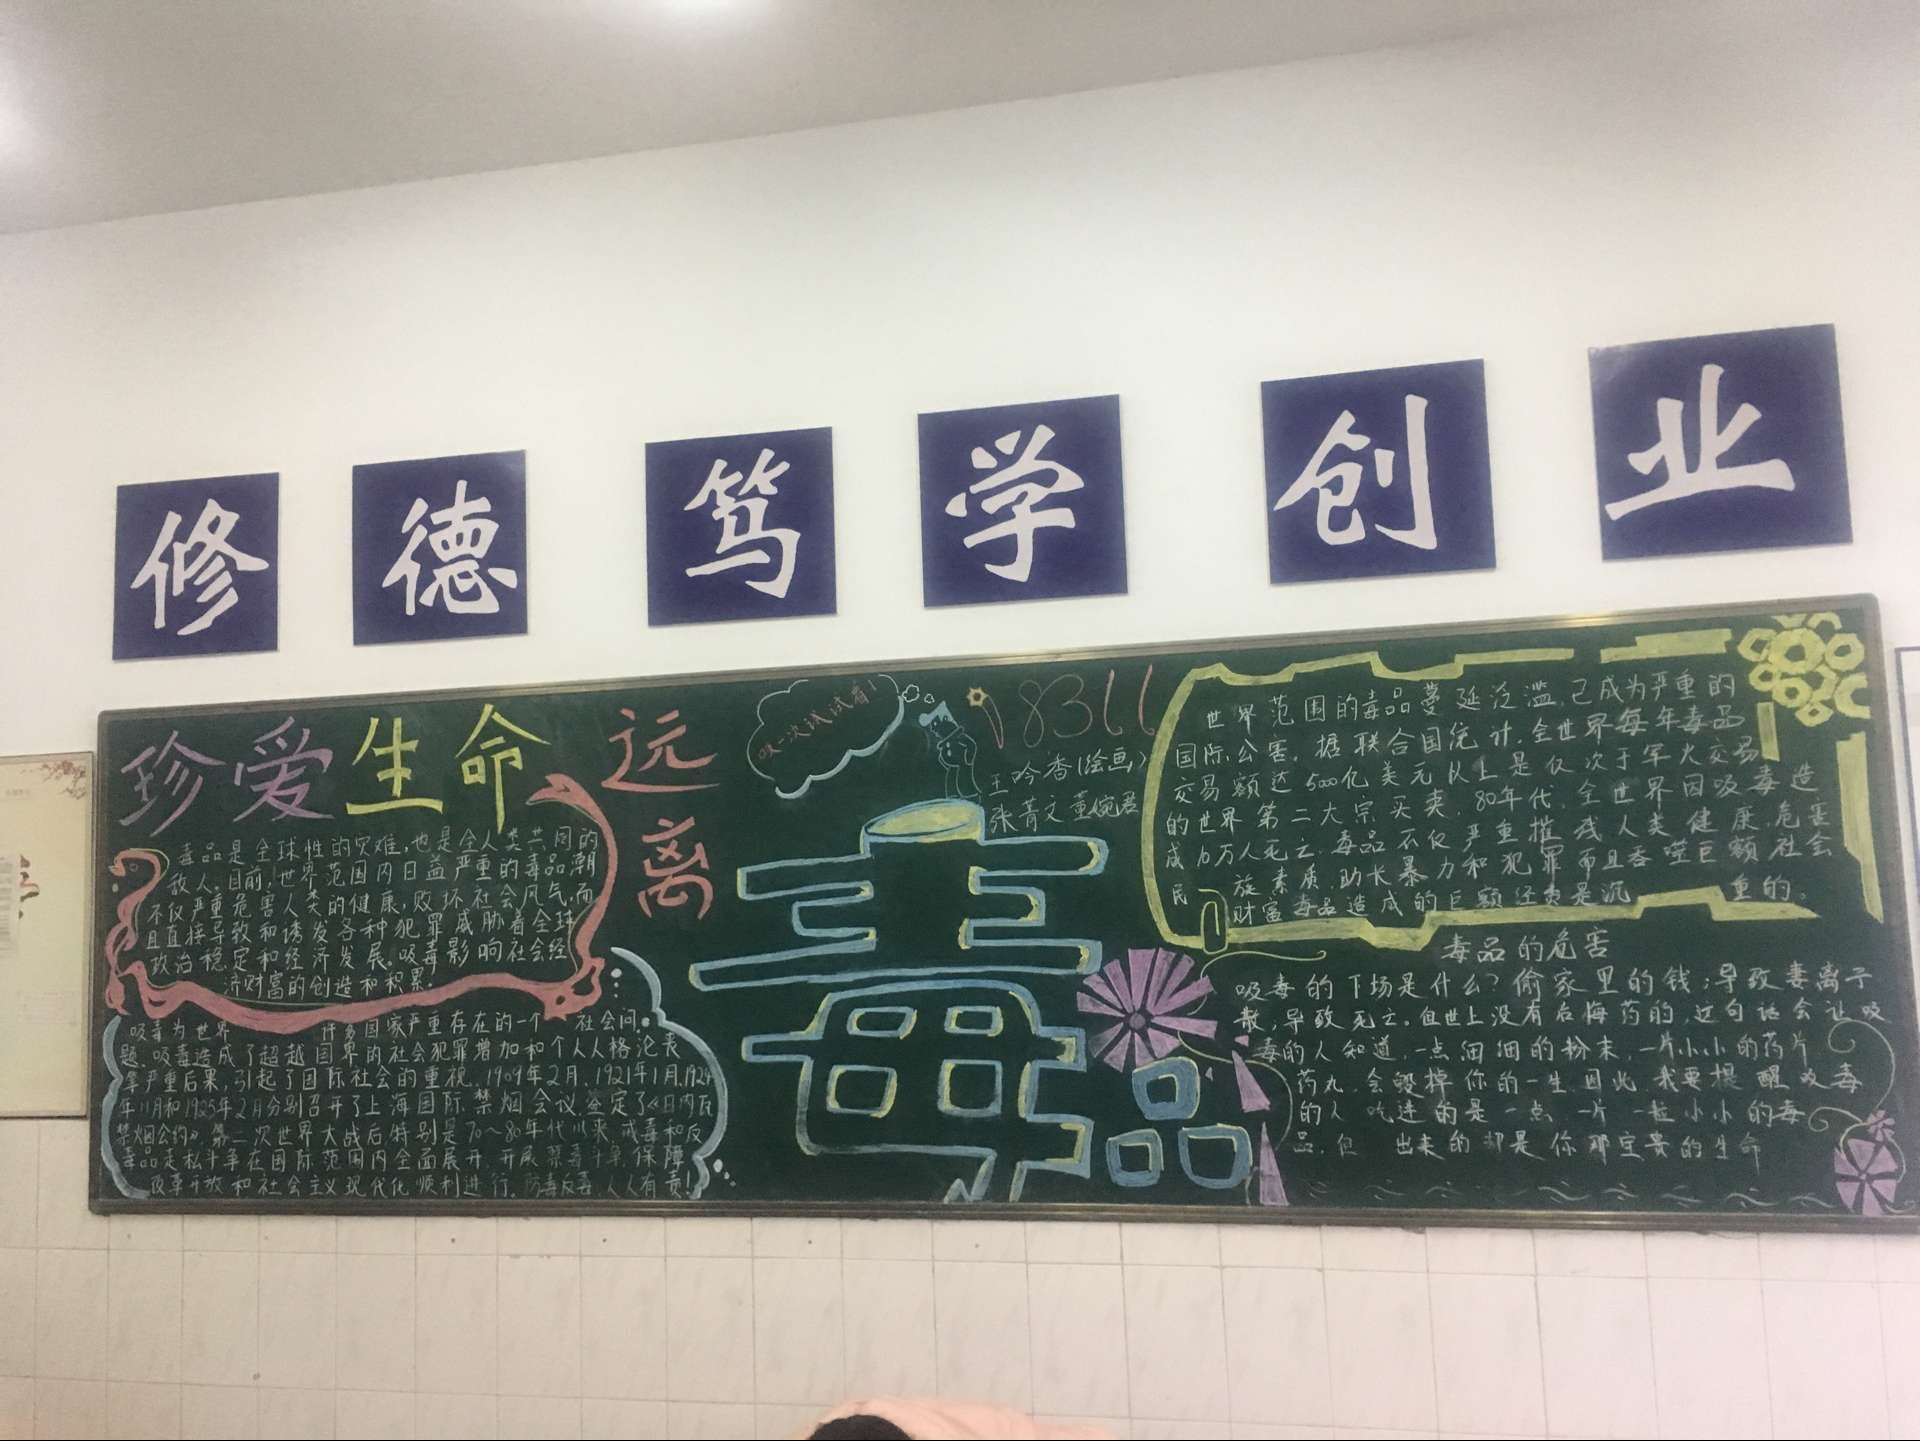 修德笃学创业
珍爱生命
远离
毒品
毒品是全球性的灾难,也是全人类共同的
敌人。目前,世界范围内日益严重的毒品潮
不仅严重危害人类的健康,败坏社会风气,而
且直接导致和诱发各种犯罪威胁着全球
政治稳定和经济发展。吸毒影响社会经
济财富的创造和积累。
吸毒为世界 许多国家严重存在的一个 社会问
题.吸毒造成了超越国界的社会犯罪增加和个人人格沦丧
等严重后果,引起了国际社会的重视.1909年2月.1921年1月.1924
年11月和1925年2月分别召开了上海国际禁烟会议.签定了《日内瓦
禁烟会约》.第二次世界大战后特别是70~80年代以来,戒毒和反
毒品走私斗争在国际范围内全面展开.开展禁毒斗争,保障
改革开放和社会主义现代化顺利进行.防毒反毒 人人有责!
吸一次试试看!
18311
王吟香(绘画)
张菁文 董婉君
世界范围的毒品蔓延泛滥,已成为严重的
国际公害。据联合国统计.全世界每年毒品
交易额达5000亿美元以上是仅次于军火交易
的世界第二大宗买卖.80年代.全世界因吸毒造
成10万人死亡.毒品不仅严重摧残人类健康.危害
民 族素质.助长暴力和犯罪而且吞噬巨额社会
财富毒品造成的巨额经费是沉 重的。
毒品的危害
吸毒的下场是什么?偷家里的钱;导致妻离子
散,导致死亡。但世上没有后悔药的,这句话会让吸
毒的人知道,一点细细的粉末,一片小小的药片
药丸.会毁掉你的一生.因此.我要提醒吸毒
的人 吃进的是一点 一片 一粒小小的毒
品,但 出来的却是你那宝贵的生命